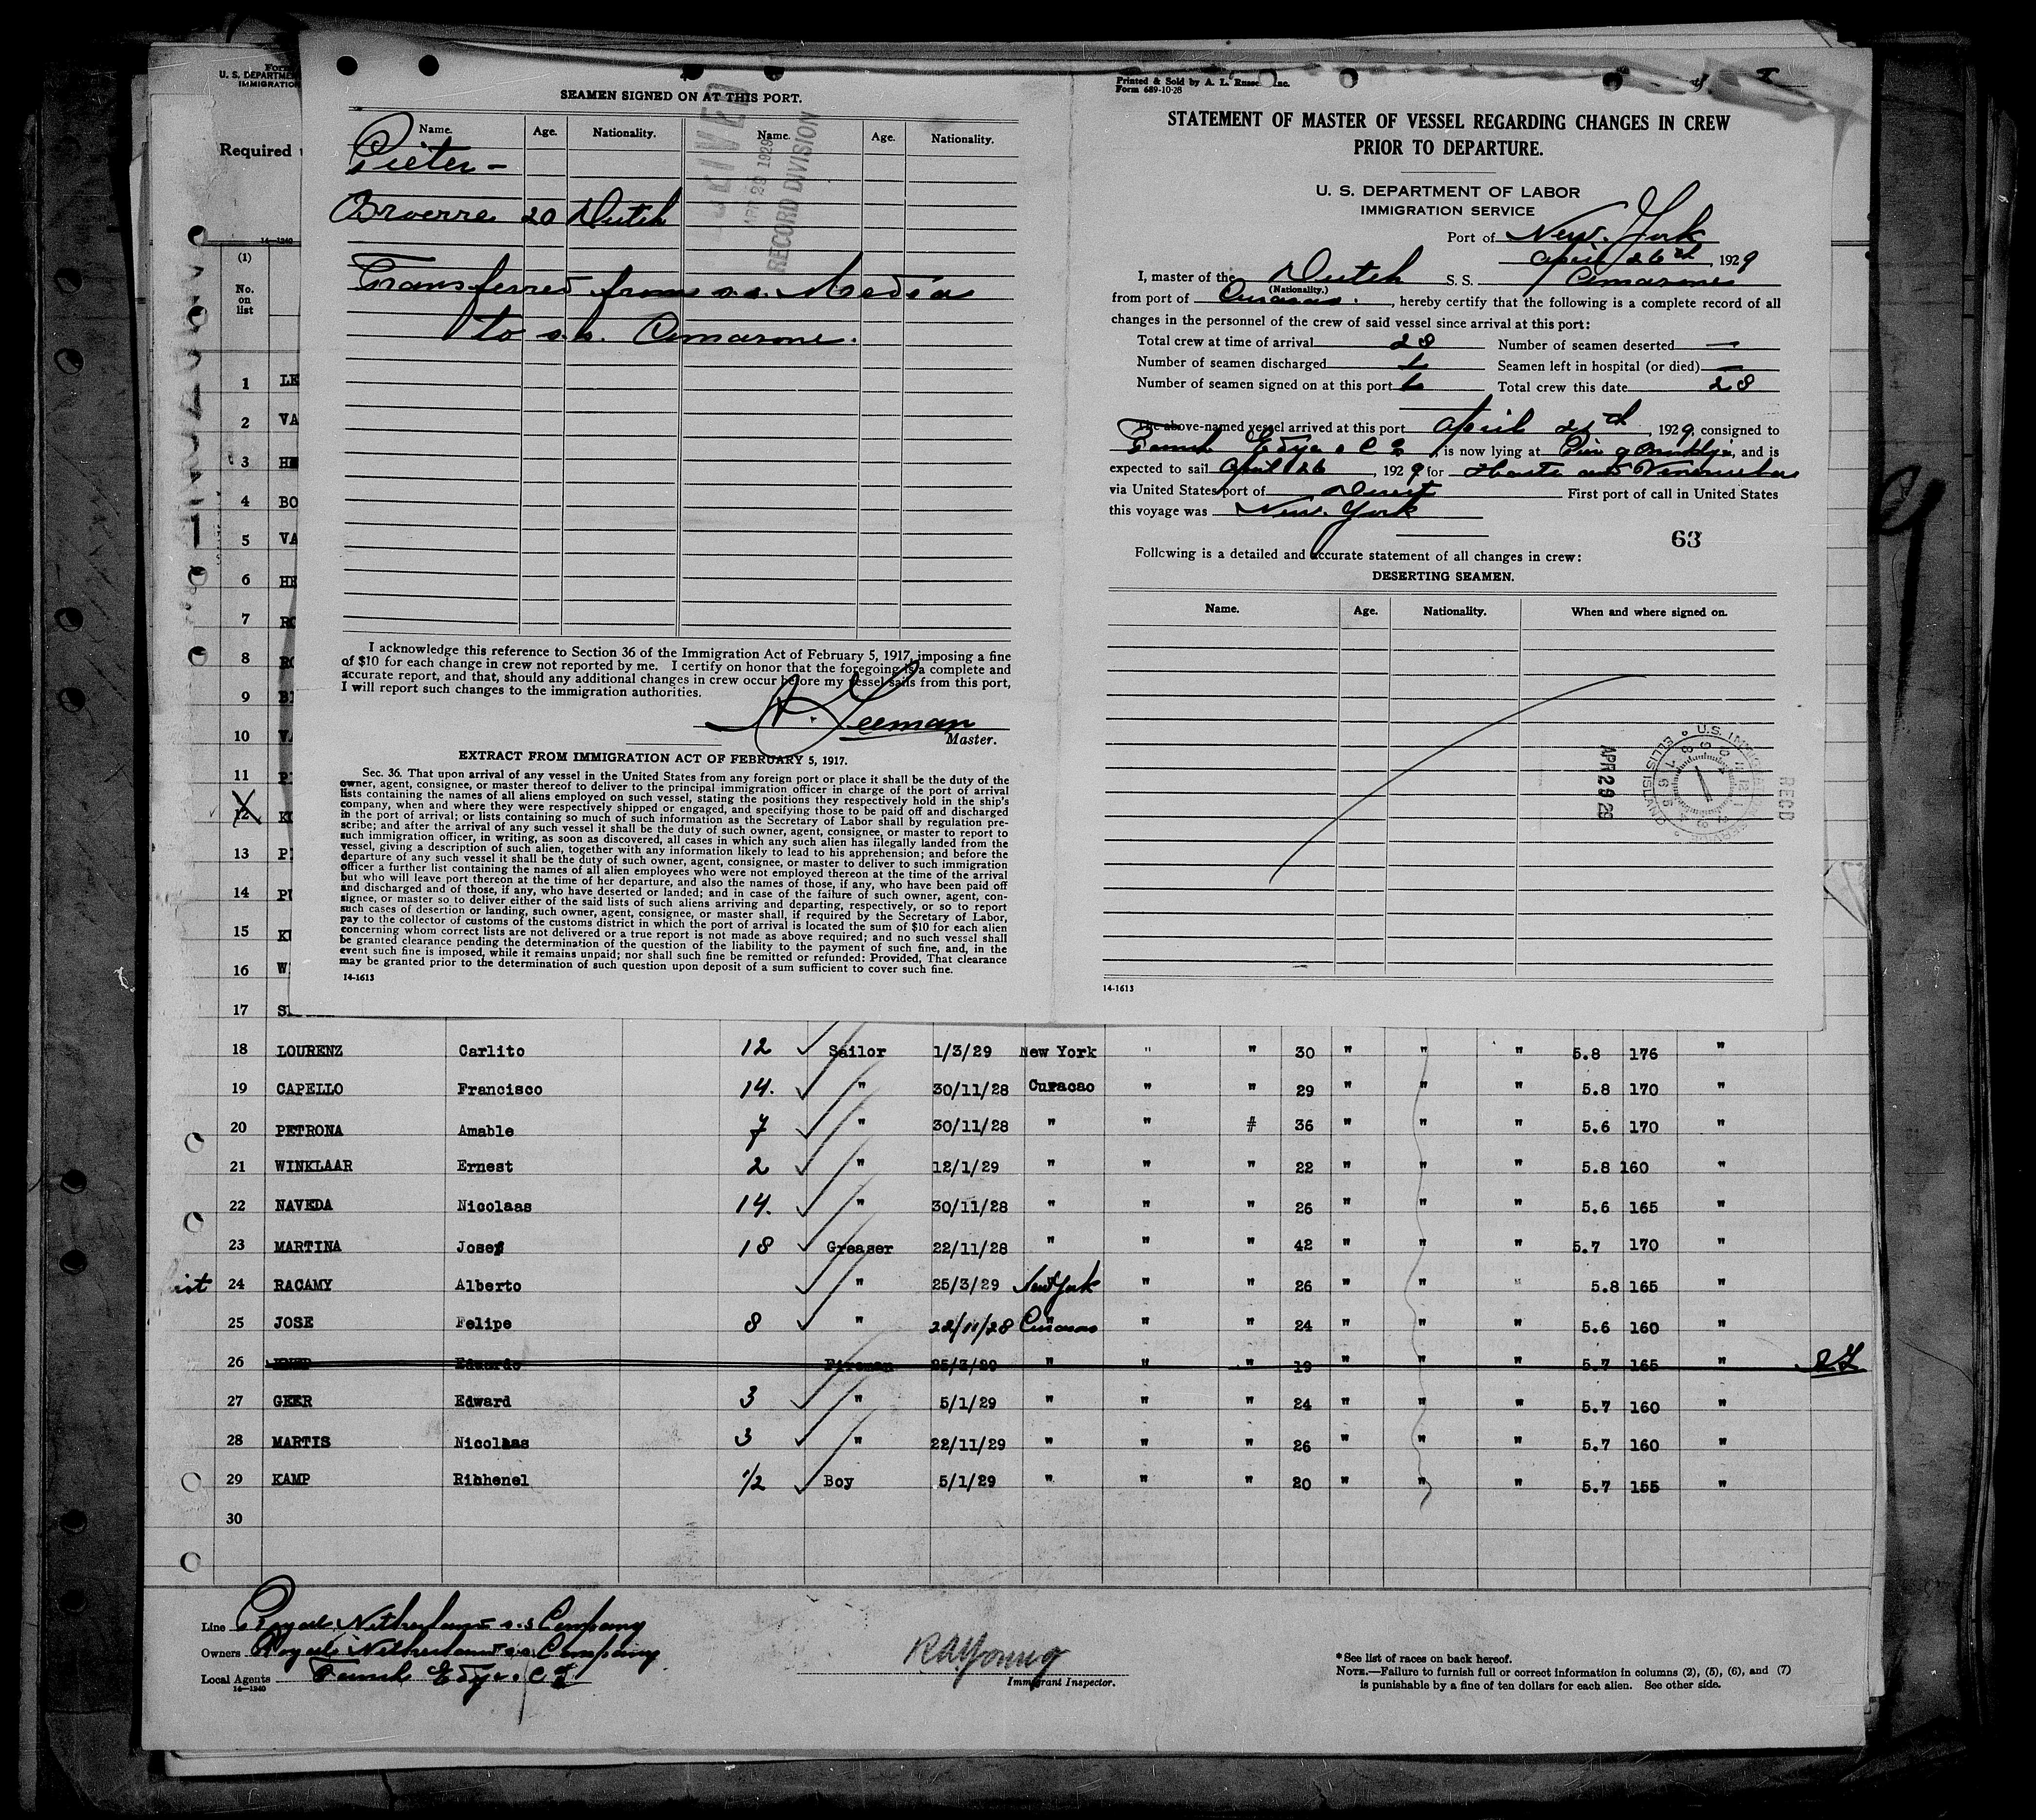 Form
U. S. DEPARTME
IMMIGRATION
Required
14—1240
(1)
No.
on
list
1 LE
2 VA
3
4 BO
5 VA
6 HE
7 RO
8
9
10 VA
11
12
13
14
15
16 W
17
SEAMEN SIGNED ON AT THIS PORT.
Name. Age. Nationality. Name. Age. Nationality.
Pieter -
Broerre 20 Dutch
APR 29 1929
RECORD DIVISION
Transferred from s.s. Media
to s.s.
I acknowledge this reference to Section 36 of the Immigration Act of February 5, 1917, imposing a fine
of $10 for each change in crew not reported by me. I certify on honor that the foregoing is a complete and
accurate report, and that, should any additional changes in crew occur before my vessel sails from this port,
I will report such changes to the immigration authorities.
Leeman
Master.
EXTRACT FROM IMMIGRATION ACT OF FEBRUARY 5, 1917.
Sec. 36. That upon arrival of any vessel in the United States from any foreign port or place it shall be the duty of the
owner, agent, consignee, or master thereof to deliver to the principal immigration officer in charge of the port of arrival
lists containing the names of all aliens employed on such vessel, stating the positions they respectively hold in the ship's
company, when and where they were respectively shipped or engaged, and specifying those to be paid off and discharged
in the port of arrival; or lists containing so much of such information as the Secretary of Labor shall by regulation pre-
scribe; and after the arrival of any such vessel it shall be the duty of such owner, agent, consignee, or master to report to
such immigration officer, in writing, as soon as discovered, all cases in which any such alien has illegally landed from the
vessel, giving a description of such alien, together with any information likely to lead to his apprehension; and before the
departure of any such vessel it shall be the duty of such owner, agent, consignee, or master to deliver to such immigration
officer a further list containing the names of all alien employees who were not employed thereon at the time of the arrival
but who will leave port thereon at the time of her departure, and also the names of those, if any, who have been paid off
and discharged and of those, if any, who have deserted or landed; and in case of the failure of such owner, agent, con-
signee, or master so to deliver either of the said lists of such aliens arriving and departing, respectively, or so to report
such cases of desertion or landing, such owner, agent, consignee, or master shall, if required by the Secretary of Labor,
pay to the collector of customs of the customs district in which the port of arrival is located the sum of $10 for each alien
concerning whom correct lists are not delivered or a true report is not made as above required; and no such vessel shall
be granted clearance pending the determination of the question of the liability to the payment of such fine, and, in the
event such fine is imposed, while it remains unpaid; nor shall such fine be remitted or refunded: Provided, That clearance
may be granted prior to the determination of such question upon deposit of a sum sufficient to cover such fine.
14-1613
Printed & Sold by A. L. Inc.
Form 689-10-28
STATEMENT OF MASTER OF VESSEL REGARDING CHANGES IN CREW
PRIOR TO DEPARTURE.
U. S. DEPARTMENT OF LABOR
IMMIGRATION SERVICE
Port of New York
April 26th, 1929
I, master of the Dutch S. S.
(Nationality.)
from port of Curacao., hereby certify that the following is a complete record of all
changes in the personnel of the crew of said vessel since arrival at this port:
Total crew at time of arrival 28 Number of seamen deserted —
Number of seamen discharged 1 Seamen left in hospital (or died) —
Number of seamen signed on at this port 1 Total crew this date 28
The above-named vessel arrived at this port April, 1929, consigned to
Funch Edye & Co is now lying at Pier 9 Brooklyn, and is
expected to sail April 26, 1929 for and
via United States port of Direct First port of call in United States
this voyage was New York
63
Following is a detailed and accurate statement of all changes in crew:
DESERTING SEAMEN.
Name. Age. Nationality. When and where signed on.
APR 29 29
REC'D
14-1613
18 LOURENZ Carlito 12 Sailor 1/3/29 New York " " 30 " " " 5.8 176 "
19 CAPELLO Francisco 14. " 30/11/28 Curacao " " 29 " " " 5.8 170 "
20 PETRONA Amable 7 " 30/11/28 " " # 36 " " " 5.6 170 "
21 WINKLAAR Ernest 2 " 12/1/29 " " " 22 " " " 5.8 160 "
22 NAVEDA Nicolaas 14. " 30/11/28 " " " 26 " " " 5.6 165 "
23 MARTINA Josef 18 Greaser 22/11/28 " " " 42 " " " 5.7 170 "
24 RACAMY Alberto " 25/3/29 New York " " 26 " " " 5.8 165 "
25 JOSE Felipe 8 " 22/11/28 Curacao " " 24 " " " 5.6 160 "
26 Eduardo Fireman 25/3/29 " " " 19 " " " 5.7 165 "
27 GEER Edward 3 " 5/1/29 " " " 24 " " " 5.7 160 "
28 MARTIS Nicolaas 3 " 22/11/29 " " " 26 " " " 5.7 160 "
29 KAMP Richenel 1/2 Boy 5/1/29 " " " 20 " " " 5.7 155 "
30
Line Royal Netherland s.s Company
Owners Royal Netherland s.s Company
Local Agents Funch Edye & Co
14—1240
R A Young
Immigrant Inspector.
* See list of races on back hereof.
NOTE.—Failure to furnish full or correct information in columns (2), (5), (6), and (7)
is punishable by a fine of ten dollars for each alien. See other side.